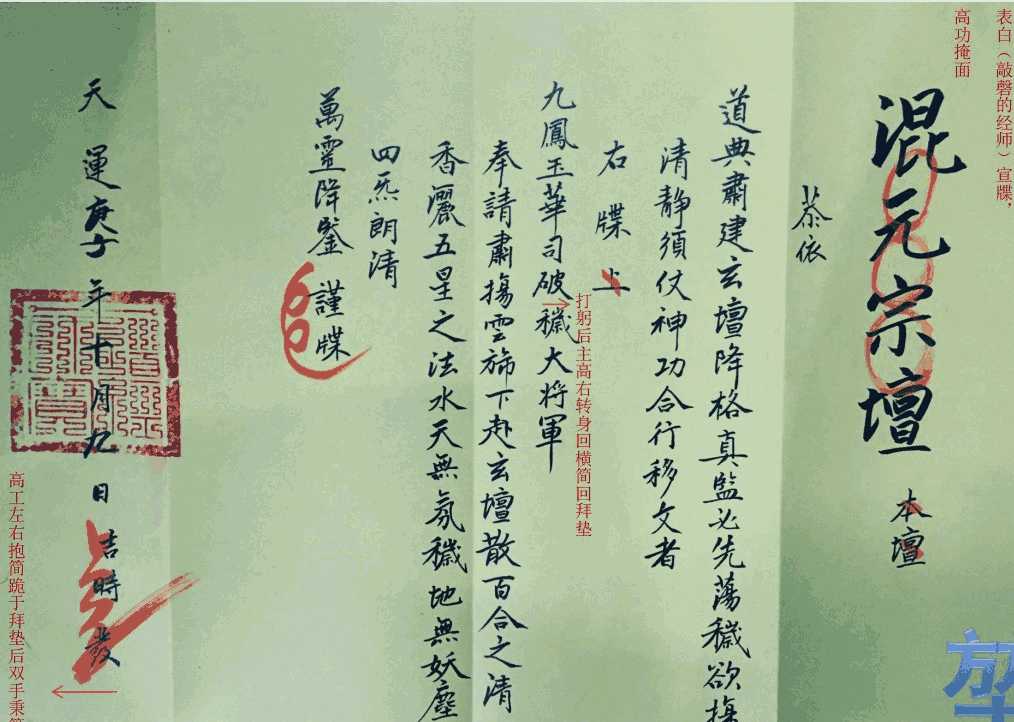 表白（敲磬的经师）宣牒，
高功掩面
混元宗壇 本壇
恭依
道典肅建玄壇降格真監必先蕩穢欲
清静須仗神功合行移文者
右牒上
九鳳玉華司破穢大将軍
打躬后主高右转身回横简回拜垫
奉請肅揚雲斾下赴玄壇散百合之清
香灑五星之法水天無氛穢地無妖塵
四炁朗清
萬靈降鑒 謹牒
天運庚子年十月九日吉時發
高工左右抱简跪于拜垫后双手秉简